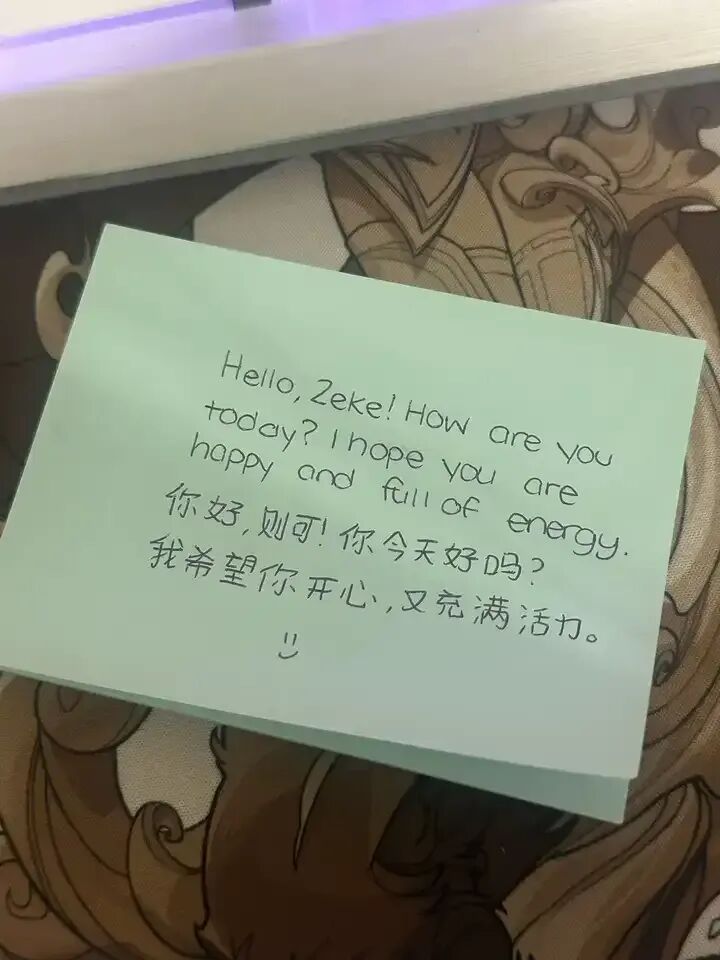 Hello, Zeke! How are you
today? I hope you are
happy and full of energy.
你好,则可! 你今天好吗?
我希望你开心,又充满活力。